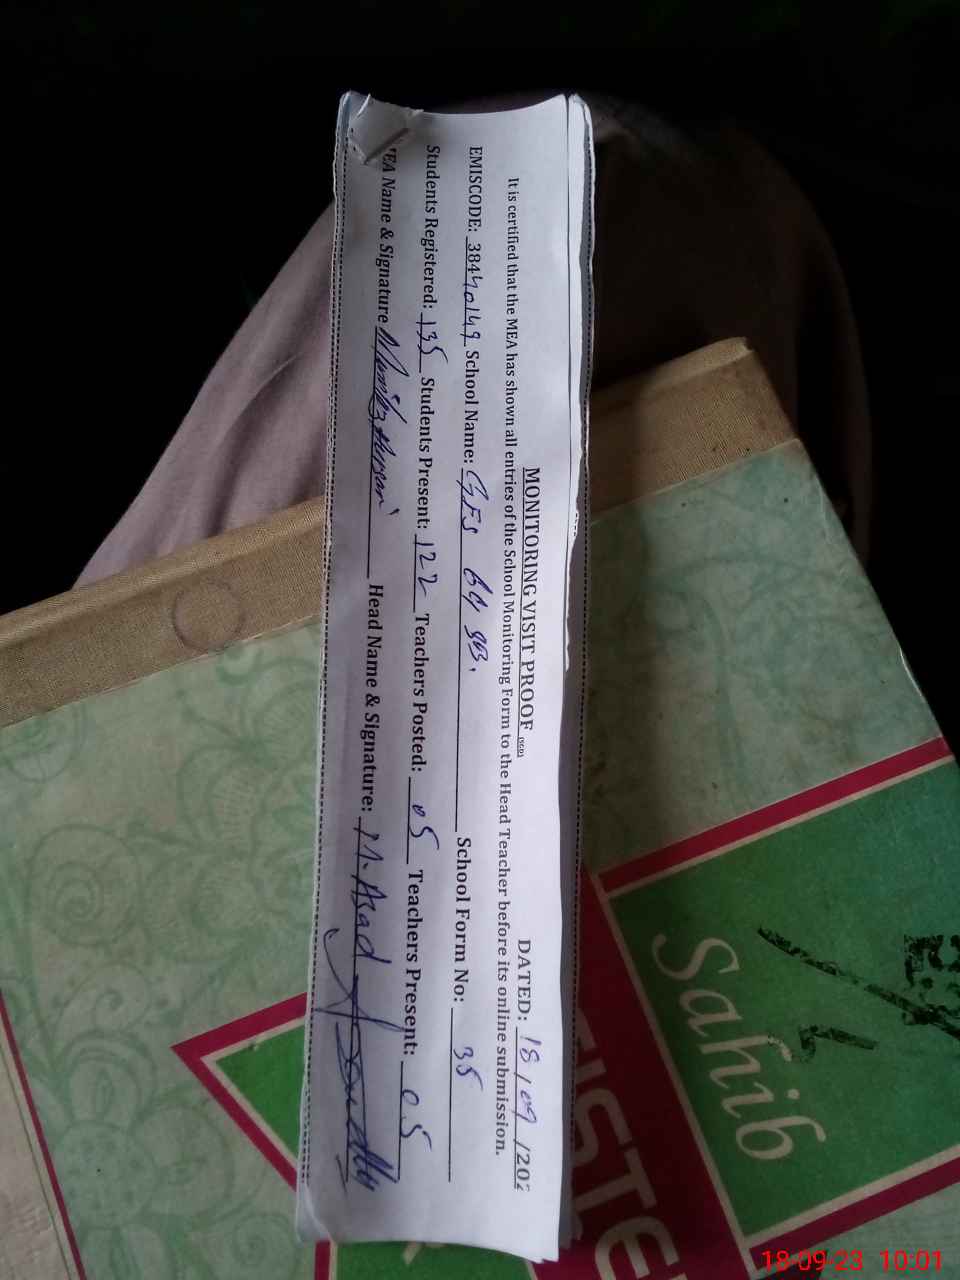 MONITORING VISIT PROOF (SGD) DATED: 18/09/202
It is certified that the MEA has shown all entries of the School Monitoring Form to the Head Teacher before its online submission.
EMISCODE: 38440149 School Name: GES 69 SB. School Form No: 35
Students Registered: 135 Students Present: 122 Teachers Posted: 05 Teachers Present: 05
EA Name & Signature Head Name & Signature: M. Asad
Sahib
18-09-23 10:01